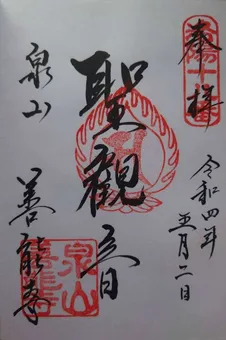 奉拝
令和四年
五月二日
聖観音
泉山
善能寺